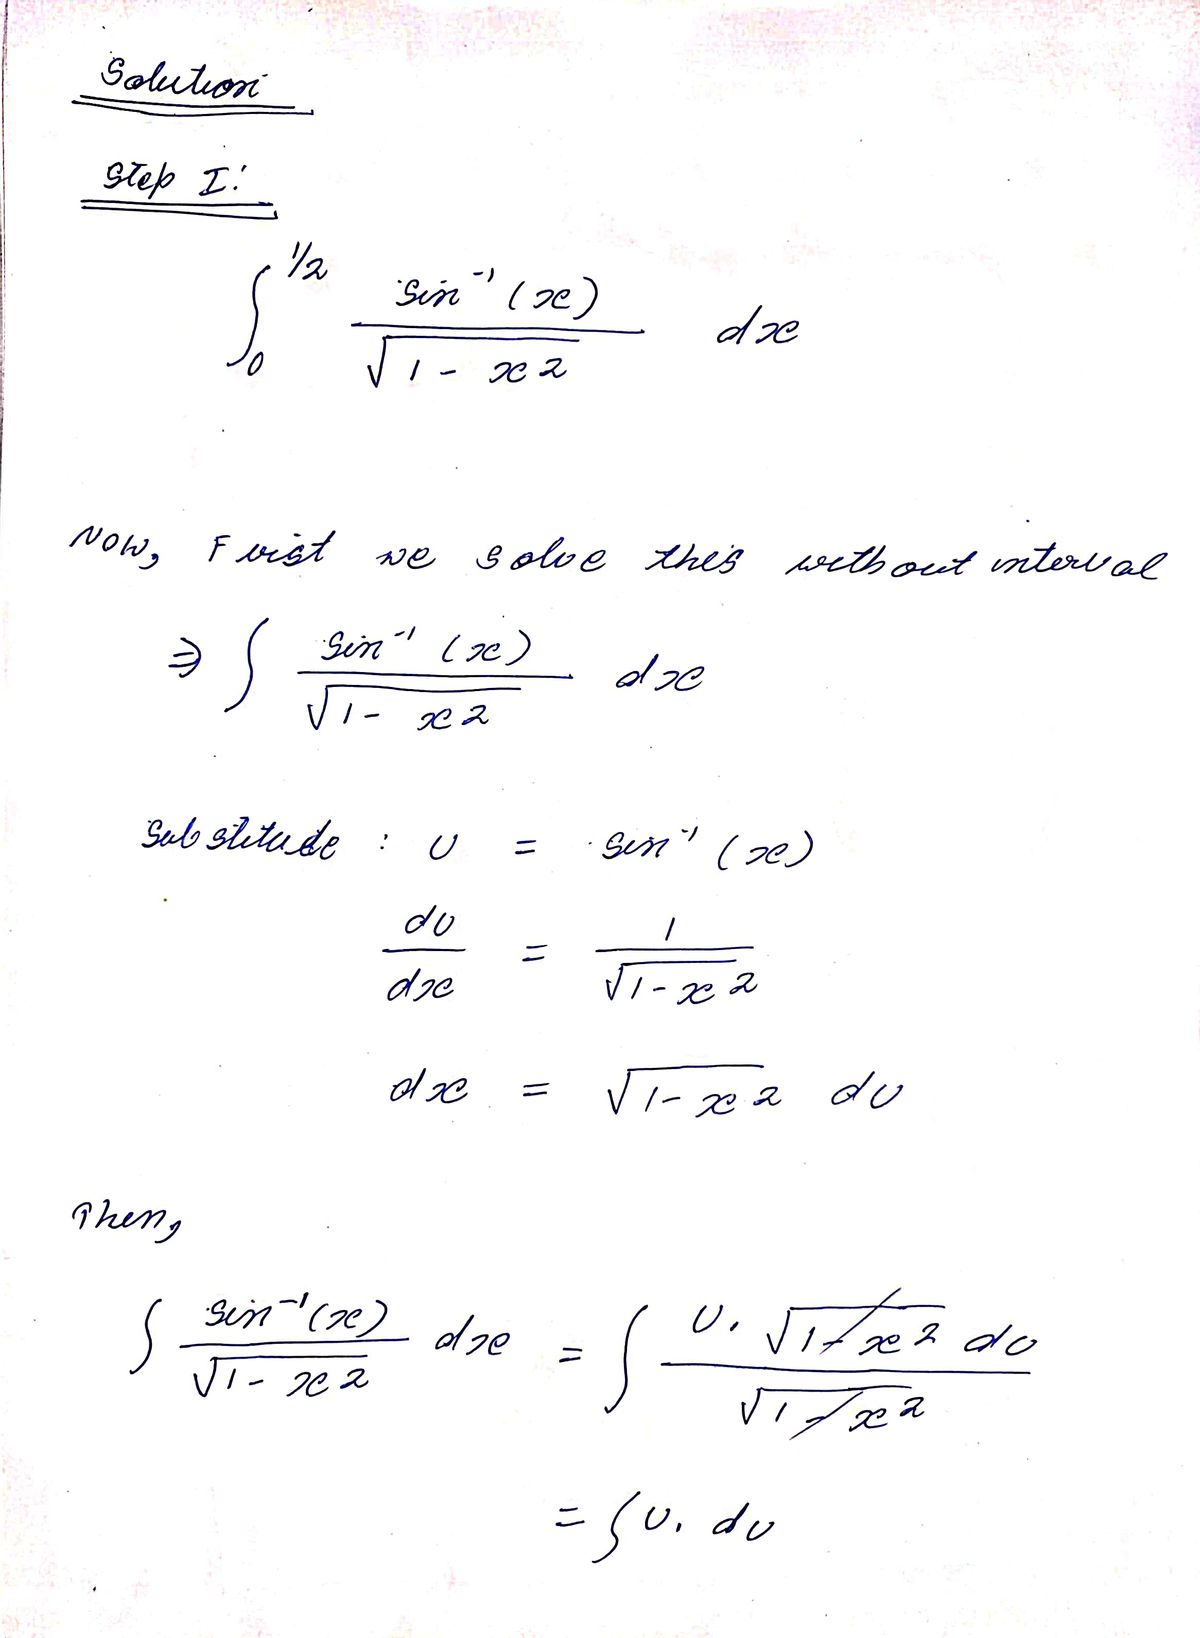 Solution
Step I:
∫₀^1/2 sin⁻¹(x) / √1-x2 dx
Now, First we solve this without interval
⇒ ∫ sin⁻¹(x) / √1-x2 dx
Substitude : U = sin⁻¹(x)
dU/dx = 1/√1-x2
dx = √1-x2 dU
Then,
∫ sin⁻¹(x) / √1-x2 dx = ∫ U. √1-x2 dU / √1-x2
= ∫U. dU